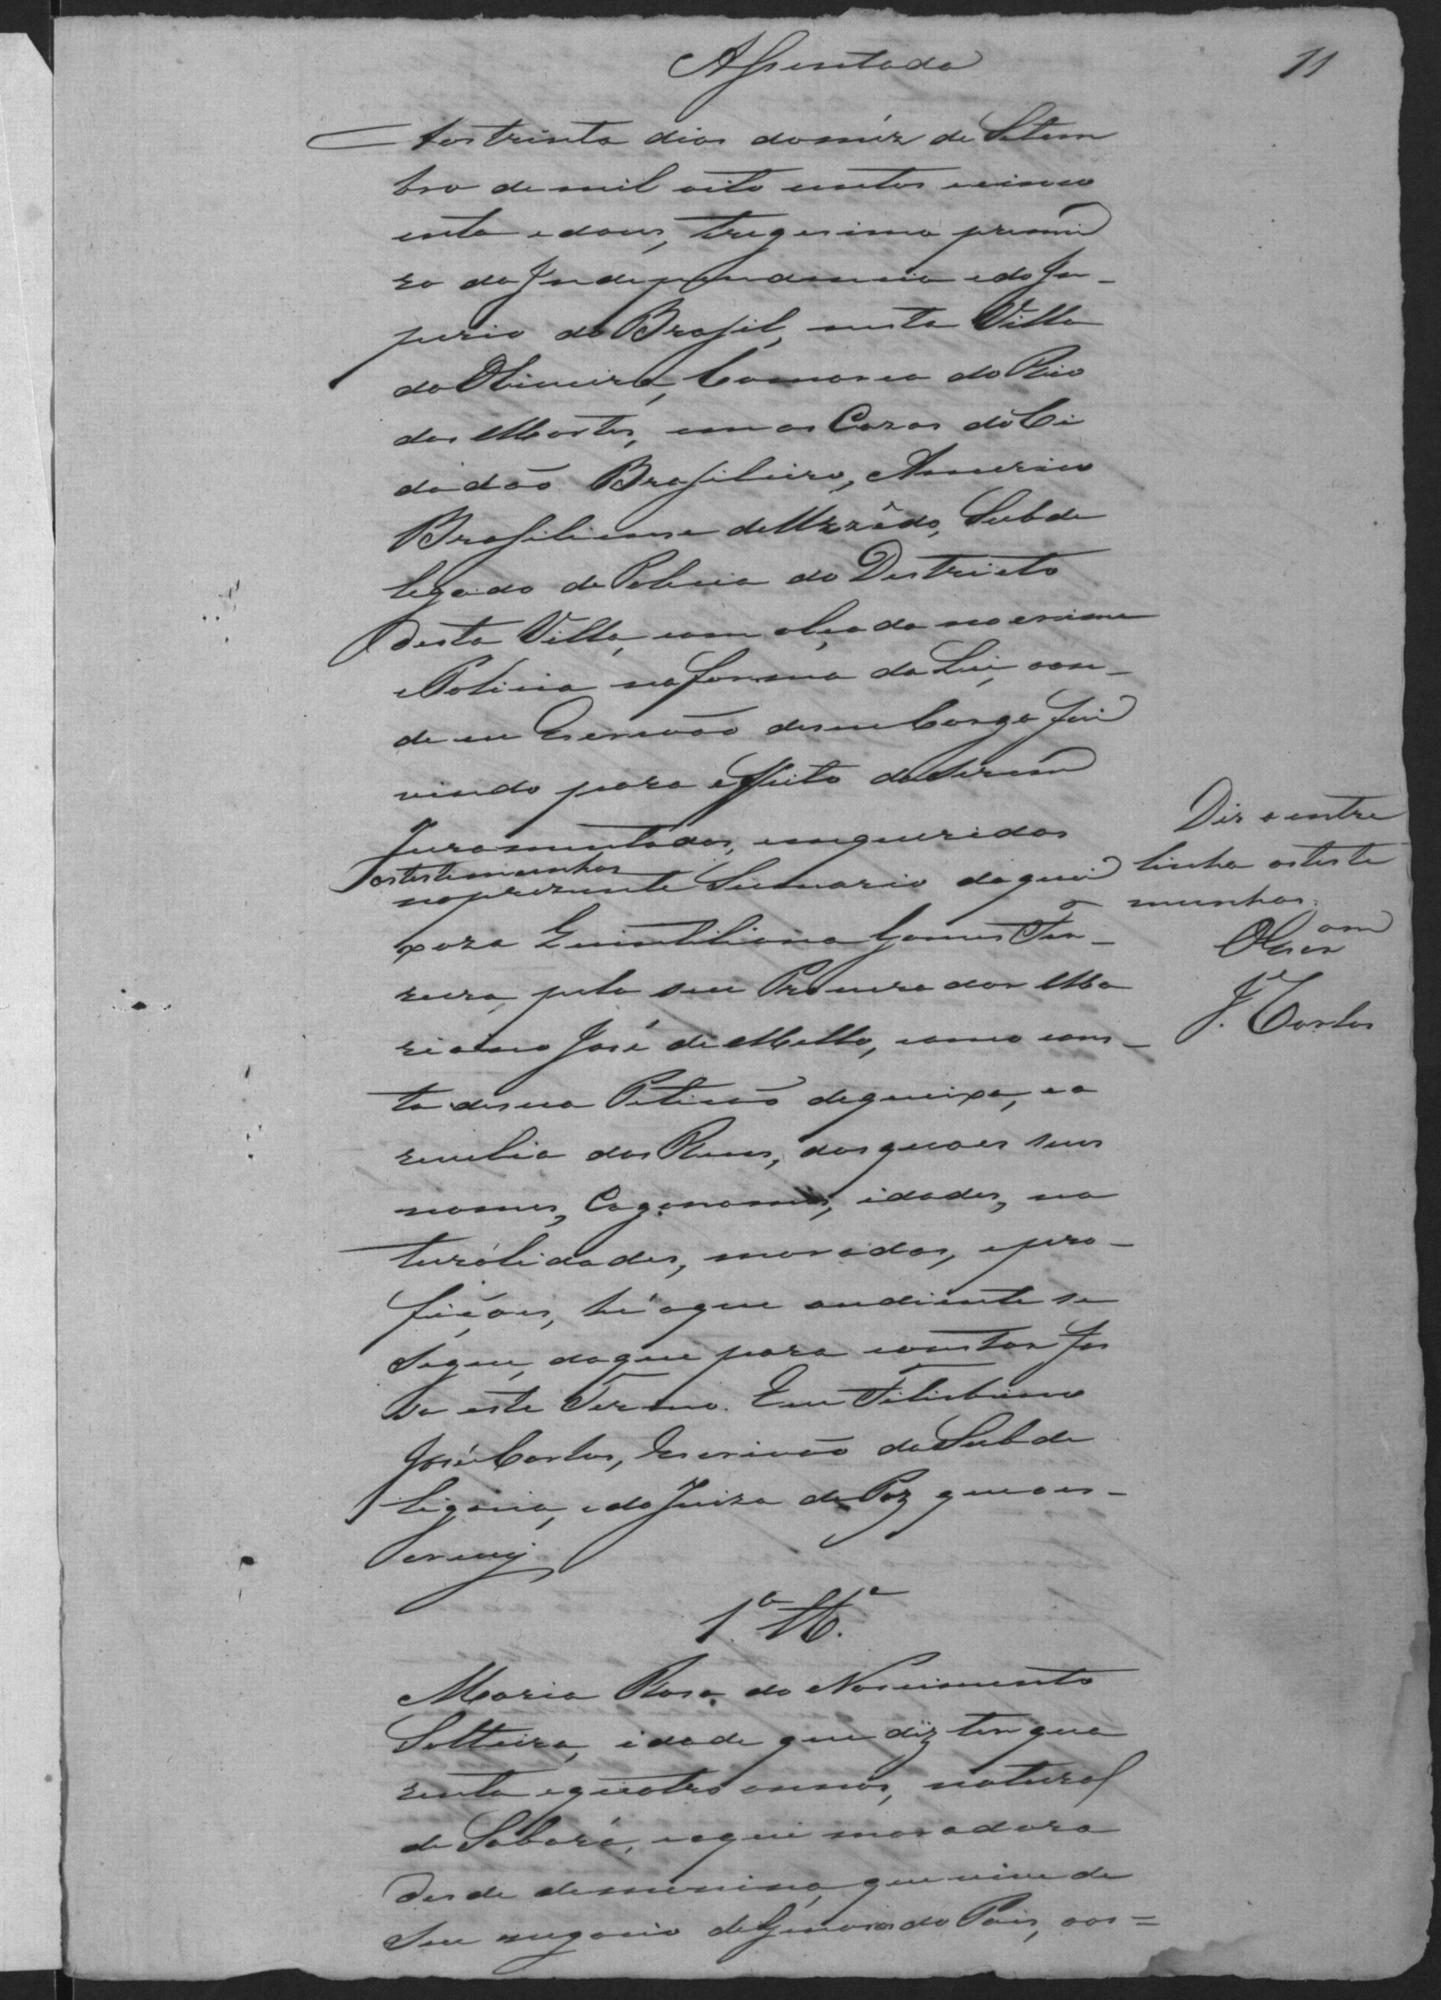 Assentada
11
Aos trinta dias do mêz de Setem
bro de mil oito centos e cinco
enta e dous, tregesimo primei
ro da Independencia e do Im-
perio do Brasil, nesta Villa
da Oliveira, Comarca do Rio
das Mortes, em as Cazas do Ci
dadão Brasileiro, Americo
Brasiliense
de Subde
legado de Policia do Destricto
desta Villa, com alçada no crime
e Policia na forma da Lei, aon-
de eu Escrivão de seu Cargo fui
vindo para effeito de serem
Juramentadas, e inqueridas
as testemunhas
no prezente Summario da quei
xoza Quintiliana Gomes Fer-
reira, pelo seu Procurador Ma
riano José de Mello, como cons-
ta de sua Petição de queixa, e a
revelia dos Reus, das quaes seus
nomes, Cognomes, idades, na
turalidades, moradas, e pro-
fições, hé o que em diente se
segue, do que para constar faç
ço este Termo. Eu Felisbino
José Cortes, Escrivão da Subde
legacia, e do Juizo de Paz que o es-
crevy
1ª Tª.
Maria Rosa do Nascimento
Solteira, idade que diz ter qua
renta e quatro annos, natural
de Sabará, e aqui moradora
desde de menina, que vive de
seu negocio de Generos do Pais, aos=
Diz a entre
linha as teste
munhas.
J. Cortes